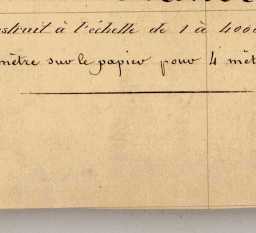 nstruit à l'échelle de 1 à 4000
mètre sur le papier pour 4 mèt